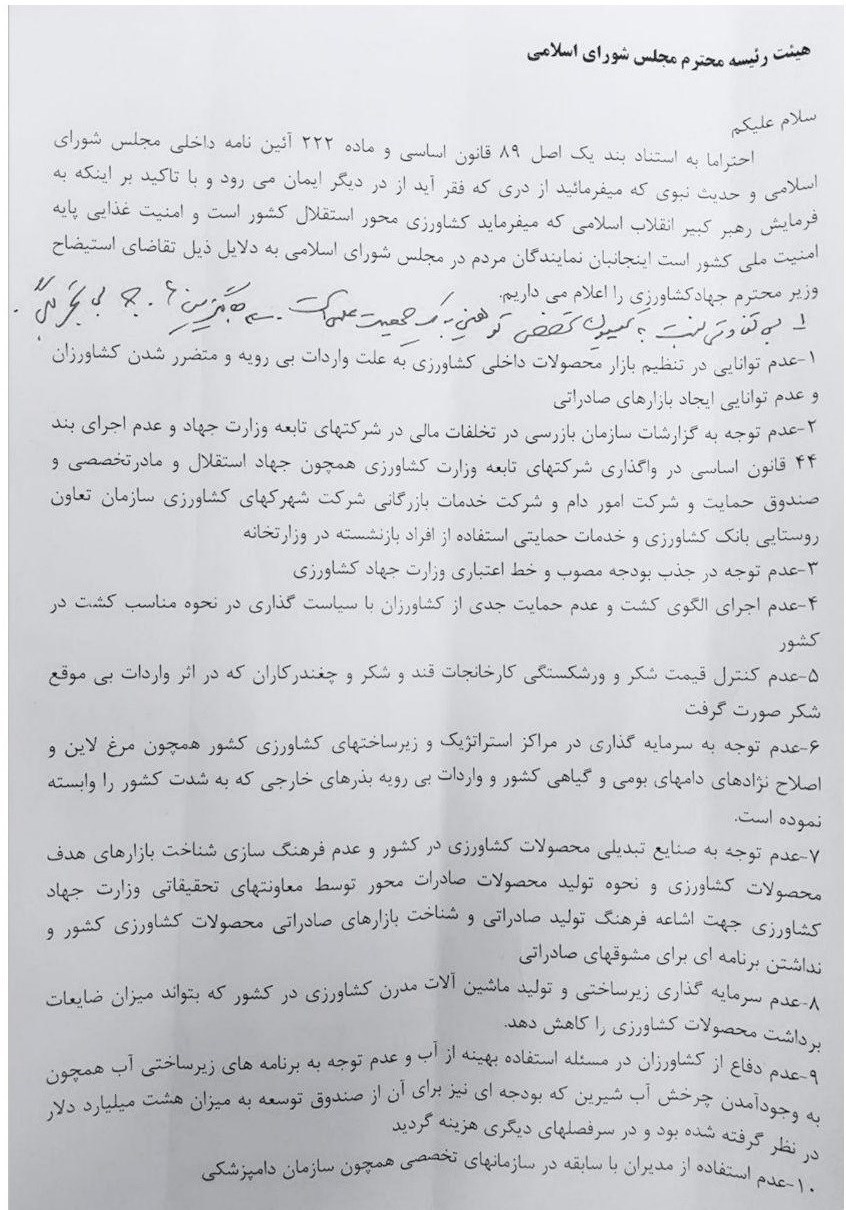 هیئت رئیسه محترم مجلس شورای اسلامی
سلام علیکم
احتراما به استناد بند یک اصل ۸۹ قانون اساسی و ماده ۲۲۲ آئین نامه داخلی مجلس شورای
اسلامی و حدیث نبوی که میفرمائید از دری که فقر آید از در دیگر ایمان می رود و با تاکید بر اینکه به
فرمایش رهبر کبیر انقلاب اسلامی که میفرماید کشاورزی محور استقلال کشور است و امنیت غذایی پایه
امنیت ملی کشور است اینجانبان نمایندگان مردم در مجلس شورای اسلامی به دلایل ذیل تقاضای استیضاح
وزیر محترم جهادکشاورزی را اعلام می داریم.
نسبت به تخصصی توهین به یک جمعیت
۱-عدم توانایی در تنظیم بازار محصولات داخلی کشاورزی به علت واردات بی رویه و متضرر شدن کشاورزان
و عدم توانایی ایجاد بازارهای صادراتی
۲-عدم توجه به گزارشات سازمان بازرسی در تخلفات مالی در شرکتهای تابعه وزارت جهاد و عدم اجرای بند
۴۴ قانون اساسی در واگذاری شرکتهای تابعه وزارت کشاورزی همچون جهاد استقلال و مادرتخصصی و
صندوق حمایت و شرکت امور دام و شرکت خدمات بازرگانی شرکت شهرکهای کشاورزی سازمان تعاون
روستایی بانک کشاورزی و خدمات حمایتی استفاده از افراد بازنشسته در وزارتخانه
۳-عدم توجه در جذب بودجه مصوب و خط اعتباری وزارت جهاد کشاورزی
۴-عدم اجرای الگوی کشت و عدم حمایت جدی از کشاورزان با سیاست گذاری در نحوه مناسب کشت در
کشور
۵-عدم کنترل قیمت شکر و ورشکستگی کارخانجات قند و شکر و چغندرکاران که در اثر واردات بی موقع
شکر صورت گرفت
۶-عدم توجه به سرمایه گذاری در مراکز استراتژیک و زیرساختهای کشاورزی کشور همچون مرغ لاین و
اصلاح نژادهای دامهای بومی و گیاهی کشور و واردات بی رویه بذرهای خارجی که به شدت کشور را وابسته
نموده است.
۷-عدم توجه به صنایع تبدیلی محصولات کشاورزی در کشور و عدم فرهنگ سازی شناخت بازارهای هدف
محصولات کشاورزی و نحوه تولید محصولات صادرات محور توسط معاونتهای تحقیقاتی وزارت جهاد
کشاورزی جهت اشاعه فرهنگ تولید صادراتی و شناخت بازارهای صادراتی محصولات کشاورزی کشور و
نداشتن برنامه ای برای مشوقهای صادراتی
۸-عدم سرمایه گذاری زیرساختی و تولید ماشین آلات مدرن کشاورزی در کشور که بتواند میزان ضایعات
برداشت محصولات کشاورزی را کاهش دهد.
۹-عدم دفاع از کشاورزان در مسئله استفاده بهینه از آب و عدم توجه به برنامه های زیرساختی آب همچون
به وجودآمدن چرخش آب شیرین که بودجه ای نیز برای آن از صندوق توسعه به میزان هشت میلیارد دلار
در نظر گرفته شده بود و در سرفصلهای دیگری هزینه گردید
۱۰-عدم استفاده از مدیران با سابقه در سازمانهای تخصصی همچون سازمان دامپزشکی